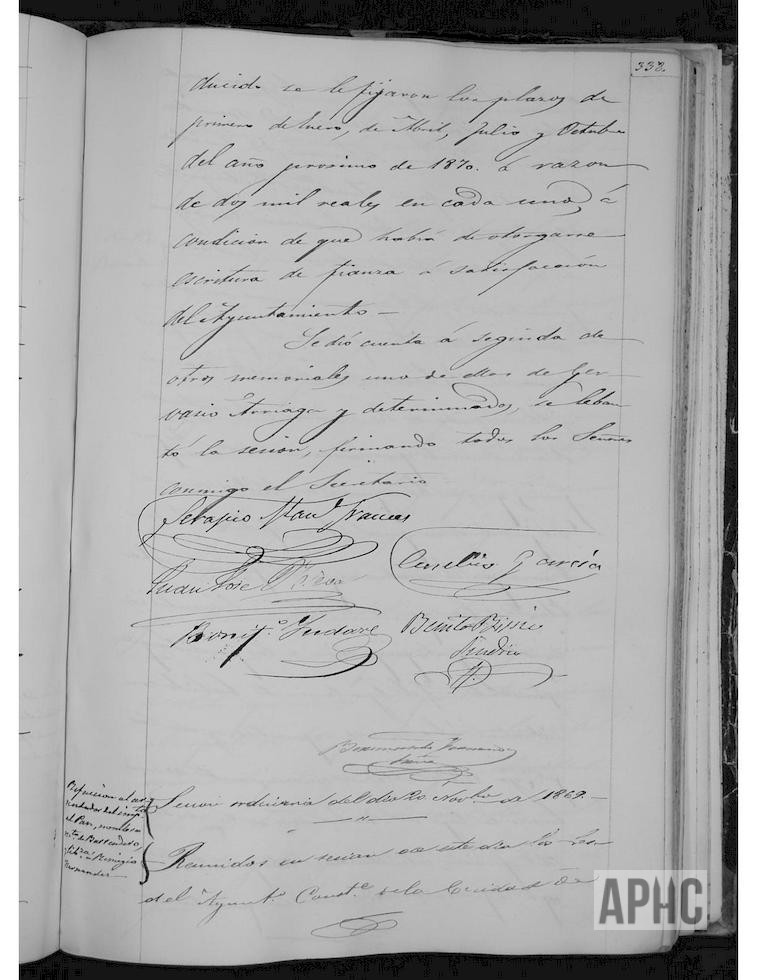 338.
ducido se le fijaron los plazos de
primero de Enero, de Abril, Julio y Octubre
del año procsimo de 1870. á razon
de dos mil reales en cada uno, á
condicion de que habrá de otorgarse
escritura de fianza á satisfaccion
del Ayuntamiento—
Se dió cuenta á seguida de
otros memoriales uno de ellos de Ger-
vasio Arriaga y determinados, se leban-
tó la sesion, firmando todos los Señores
conmigo el Secretario
Serapio Man.l Frances
Aurelio Garcia
Juan Jose
Bonif.o Indave
Benito
Sesion ordinaria del dia 20 Novbre de 1869.—
del Pan,
Remigio
Hernandez—
Reunidos en sesion de este dia los Sres
del Ayunt.o Const.l de la Ciudad de
APHC